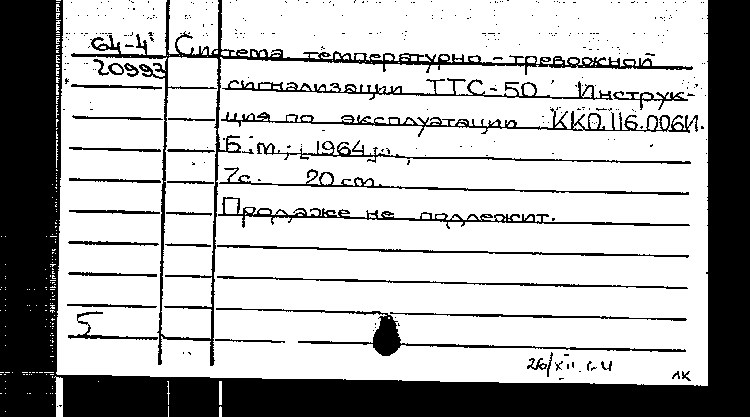 64-4 Система температурно-тревожной
20993 сигнализации ТТС-50. Инструк-
ция по эксплуатации ККО.116.006И.
Б.м., [1964].
7с. 20 cm.
Продаже не подлежит.
5
26/XII.64
ЛК